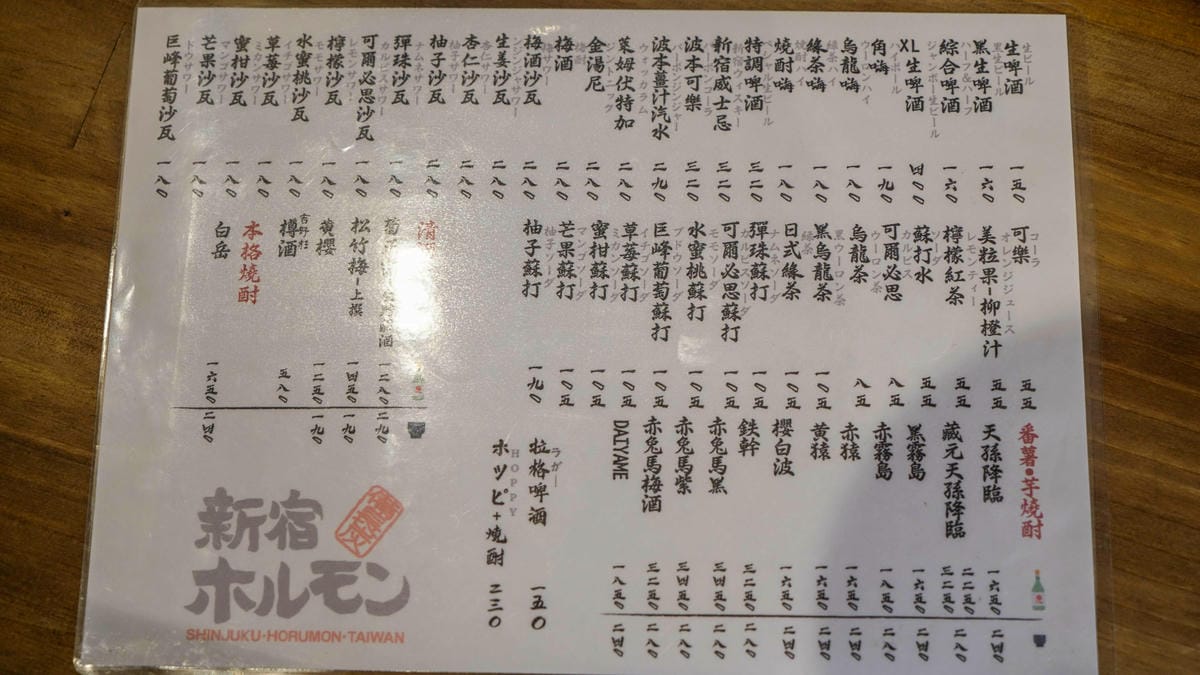 生ビール
生啤酒 一五〇
黒生ビール
黑生啤酒 一六〇
ハーフ&ハーフ
綜合啤酒 一六〇
ジャンボー生ビール
XL生啤酒 四〇〇
ハイボール
角嗨 一九〇
ウーロンハイ
烏龍嗨 一八〇
緑茶ハイ
綠茶嗨 一八〇
焼酎ハイ
燒酎嗨 一八〇
特調啤酒 三二〇
新宿ウィスキー
新宿威士忌 三二〇
バーボンコーラ
波本可樂 三二〇
バーボンジンジャー
波本薑汁汽水 二九〇
萊姆伏特加 二八〇
ジントニック
金湯尼 二八〇
梅酒
梅酒 二八〇
梅酒サワー
梅酒沙瓦 二八〇
ジンジャーサワー
生姜沙瓦 二八〇
杏仁サワー
杏仁沙瓦 二八〇
柚子サワー
柚子沙瓦 二八〇
ナムネサワー
彈珠沙瓦 一八〇
カルピスサワー
可爾必思沙瓦 一八〇
レモンサワー
檸檬沙瓦 一八〇
モモサワー
水蜜桃沙瓦 一八〇
イチゴサワー
草莓沙瓦 一八〇
ミカンサワー
蜜柑沙瓦 一八〇
マンゴサワー
芒果沙瓦 一八〇
ブドウサワー
巨峰葡萄沙瓦 一八〇
コーラ
可樂 五五
オレンジジュース
美粒果-柳橙汁 五五
レモンティー
檸檬紅茶 五五
ソーダ
蘇打水 五五
カルピス
可爾必思 八五
ウーロン茶
烏龍茶 八五
黒ウーロン茶
黑烏龍茶 一〇五
緑茶
日式綠茶 一〇五
ナムネソーダ
彈珠蘇打 一〇五
カルピスソーダ
可爾必思蘇打
モモソーダ
水蜜桃蘇打 一〇五
ブドウソーダ
巨峰葡萄蘇打 一〇五
イチゴソーダ
草莓蘇打 一〇五
ミカンソーダ
蜜柑蘇打 一〇五
マンゴソーダ
芒果蘇打 一〇五
柚子ソーダ
柚子蘇打 一九〇
清
菊 酒 一二八〇 二九〇
松竹梅-上撰 一四五〇 一九〇
黄櫻 一二五〇 一九〇
吉野杉
樽酒 五八〇
本格燒酎
白岳 一六五〇 二四〇
番薯・芋燒酎
天孫降臨 一六五〇 二四〇
藏元天孫降臨 二二五〇 二八〇
黑霧島 三二五〇 二四〇
赤霧島 一八五〇 二四〇
赤猿 一六五〇 二四〇
黄猿 一六五〇 二四〇
櫻白波 一六五〇 二四〇
鉄幹 三二五〇 二八〇
赤兔馬黑 三四五〇 二八〇
赤兔馬紫 三四五〇 二八〇
赤兔馬梅酒 三二五〇 二八〇
DAIYAME 一八五〇 二四〇
ラガー
拉格啤酒 一五〇
HOPPY
ホッピ+燒酎 二三〇
新宿
ホルモン
SHINJUKU・HORUMON・TAIWAN